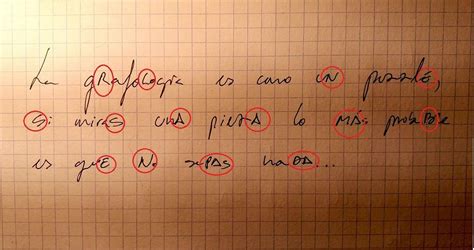 La gRafoLogia es como uN puzzlE,
Si miraS unA piezA lo MÁs probaBle
es quE No sePAS naDA...